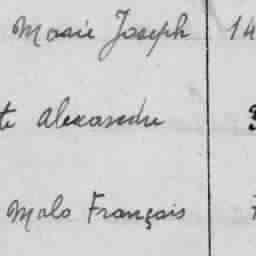 Marie Joseph 14
te Alexandre 3
Malo Français